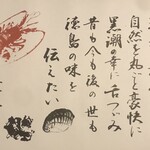 自然を丸ごと豪快に
黒潮の幸に舌づつみ
昔も今も後の世も
徳島の味を
伝えたい